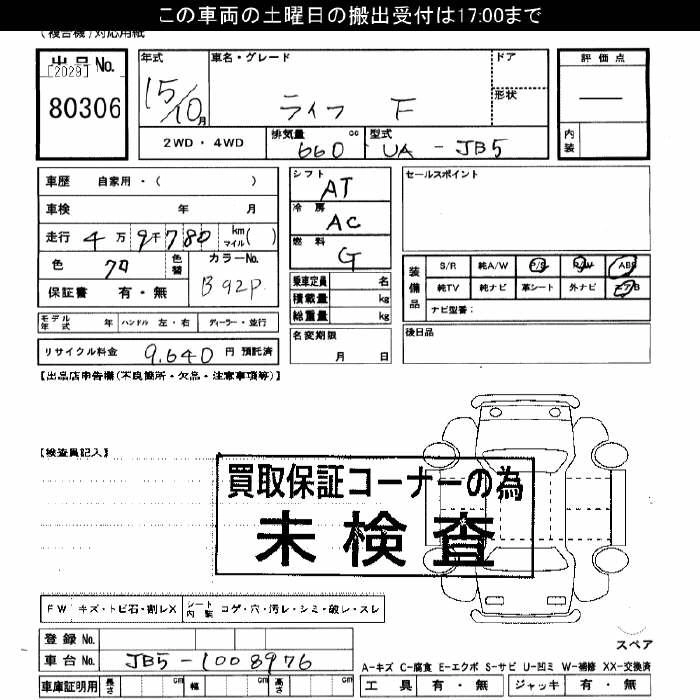 この車両の土曜日の搬出受付は17:00まで
(複合機)対応用紙
出品No.
[2029]
80306
年式 車名・グレード ドア
15/10月 ライフ F 形状
2WD・4WD 排気量 cc 660 型式 UA - JB5
評価点
内装
車歴 自家用・( )
車検 年 月
走行 4万9千780 km マイル( )
色 クロ 色替 カラーNo.
保証書 有・無 B92P
シフト AT
冷房 AC
燃料 G
乗車定員 名
積載量 kg
総重量 kg
セールスポイント
装備品 S/R 純A/W P/S P/W ABS
純TV 純ナビ 革シート 外ナビ エアB
ナビ型番:
モデル年式 年 ハンドル 左・右 ディーラー・並行
リサイクル料金 9,640 円 預託済
名変期限
月 日
後日品
【出品店申告欄(不良箇所・欠品・注意事項等)】
【検査員記入】
買取保証コーナーの為
未検査
FW キズ・トビ石・割レX シート内装 コゲ・穴・汚レ・シミ・破レ・スレ
登録No.
車台No. JB5-1008976
車庫証明用 長さ cm 幅 cm 高さ cm
スペア
A-キズ C-腐食 E-エクボ S-サビ U-凹ミ W-補修 XX-交換済
工具 有・無 ジャッキ 有・無